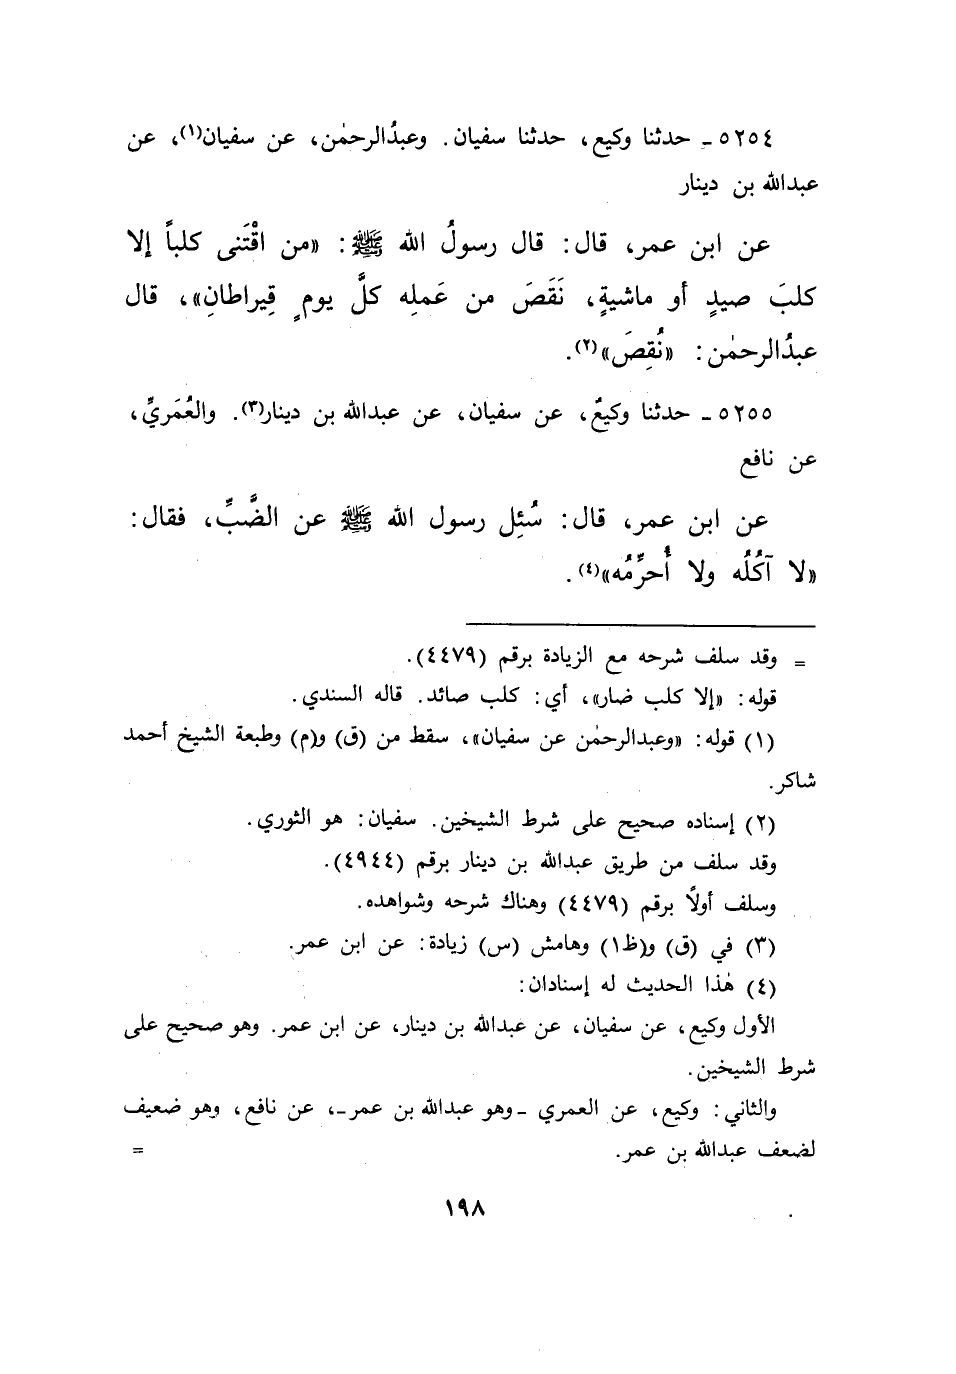 ٥٢٥٤ ـ حدثنا وكيع، حدثنا سفيان. وعبدُالرحمٰن، عن سفيان(١)، عن
عبدالله بن دينار
عن ابن عمر، قال: قال رسولُ الله ﷺ: «من اقْتَنى كلباً إلا
كلبَ صيدٍ أو ماشيةٍ، نَقَصَ من عَملِه كلَّ يومٍ قِيراطانِ»، قال
عبدُالرحمٰن: «نُقِصَ»(٢).
٥٢٥٥ ـ حدثنا وكيعٌ، عن سفيان، عن عبدالله بن دينار(٣). والعُمَريِّ،
عن نافع
عن ابن عمر، قال: سُئِل رسول الله ﷺ عن الضَّبِّ، فقال:
«لا آكُلُه ولا أُحرِّمُه»(٤).
= وقد سلف شرحه مع الزيادة برقم (٤٤٧٩).
قوله: «إلا كلب ضار»، أي: كلب صائد. قاله السندي.
(١) قوله: «وعبدالرحمٰن عن سفيان»، سقط من (ق) و(م) وطبعة الشيخ أحمد
شاكر.
(٢) إسناده صحيح على شرط الشيخين. سفيان: هو الثوري.
وقد سلف من طريق عبدالله بن دينار برقم (٤٩٤٤).
وسلف أولاً برقم (٤٤٧٩) وهناك شرحه وشواهده.
(٣) في (ق) و(ظ١) وهامش (س) زيادة: عن ابن عمر.
(٤) هٰذا الحديث له إسنادان:
الأول وكيع، عن سفيان، عن عبدالله بن دينار، عن ابن عمر. وهو صحيح على
شرط الشيخين.
والثاني: وكيع، عن العمري ـ وهو عبدالله بن عمر ـ، عن نافع، وهو ضعيف
لضعف عبدالله بن عمر. =
١٩٨